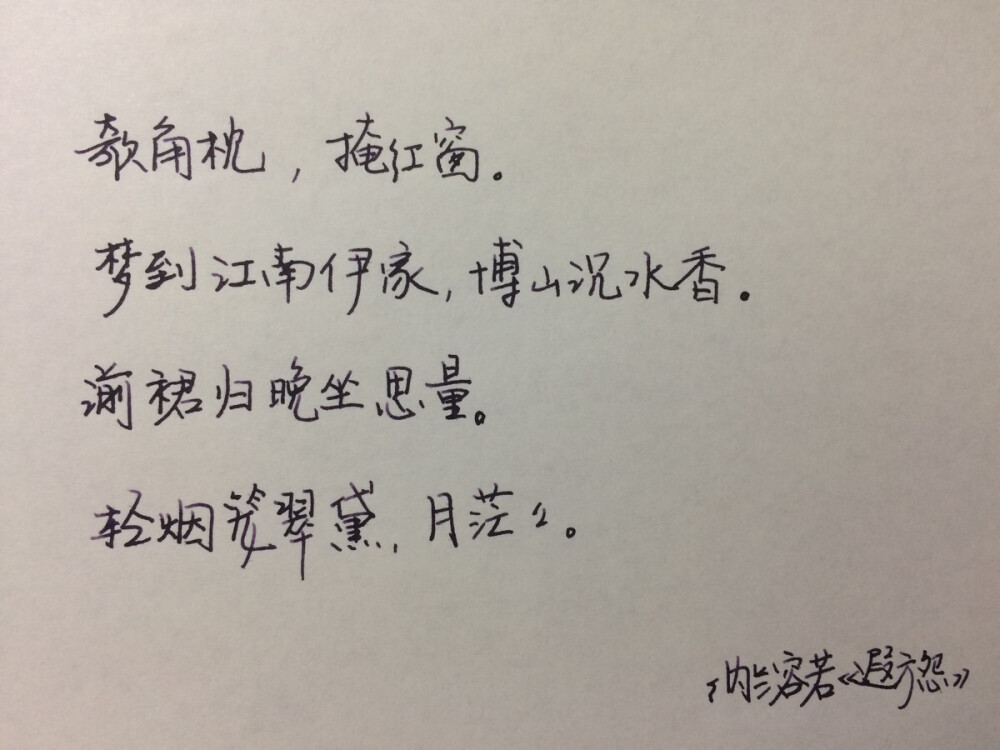 欹角枕，掩红窗。
梦到江南伊家，博山沉水香。
湔裙归晚坐思量。
轻烟笼翠黛，月茫々。
纳兰容若《遐方怨》